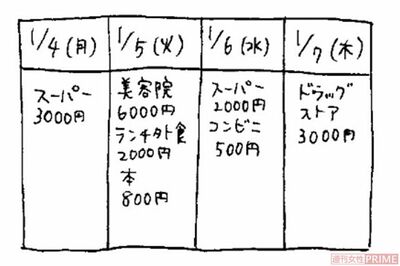 1/4(月)
1/5(火)
1/6(水)
1/7(木)
スーパー
3000円
美容院
6000円
ランチ外食
2000円
本
800円
スーパー
2000円
コンビニ
500円
ドラッグ
ストア
3000円
週刊女性PRIME